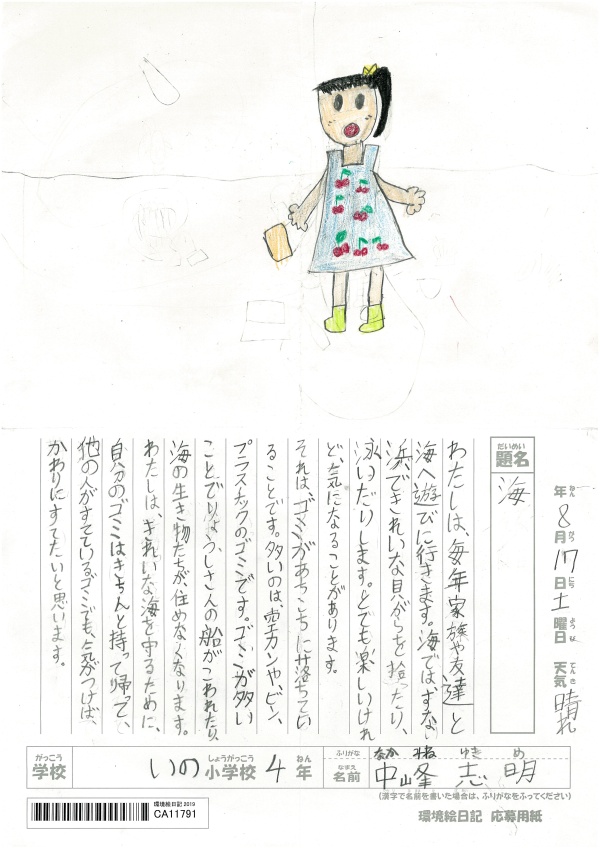 だいめい
題名
海
年 ねん
8月 がつ
17日 にち
土曜日 ようび
天気 てんき
晴れ
わたしは、毎年家族や友達と
海へ遊びに行きます。海では、すな
浜できれいな貝がらを捨ったり、
泳いだりします。とても楽しいけれ
ど、気になることがあります。
それは、ゴミがあちこちに落ちてい
ることです。多いのは、空カンや、ビン、
プラスチックのゴミです。ゴミが多い
ことでりょうしさんの船がこわれたり、
海の生き物たちが、住めなくなります。
わたしは、きれいな海を守るために、
自分のゴミはきちんと持って帰って、
他の人がすてているゴミでも、気がつけば、
かわりにすてたいと思います。
がっこう
学校
いの小学校 しょうがっこう
4年 ねん
ふりがな
なか みね ゆき め
なまえ
名前
中峰 志明
(漢字で名前を書いた場合は、ふりがなをふってください)
環境絵日記 2019
CA11791
環境絵日記 応募用紙